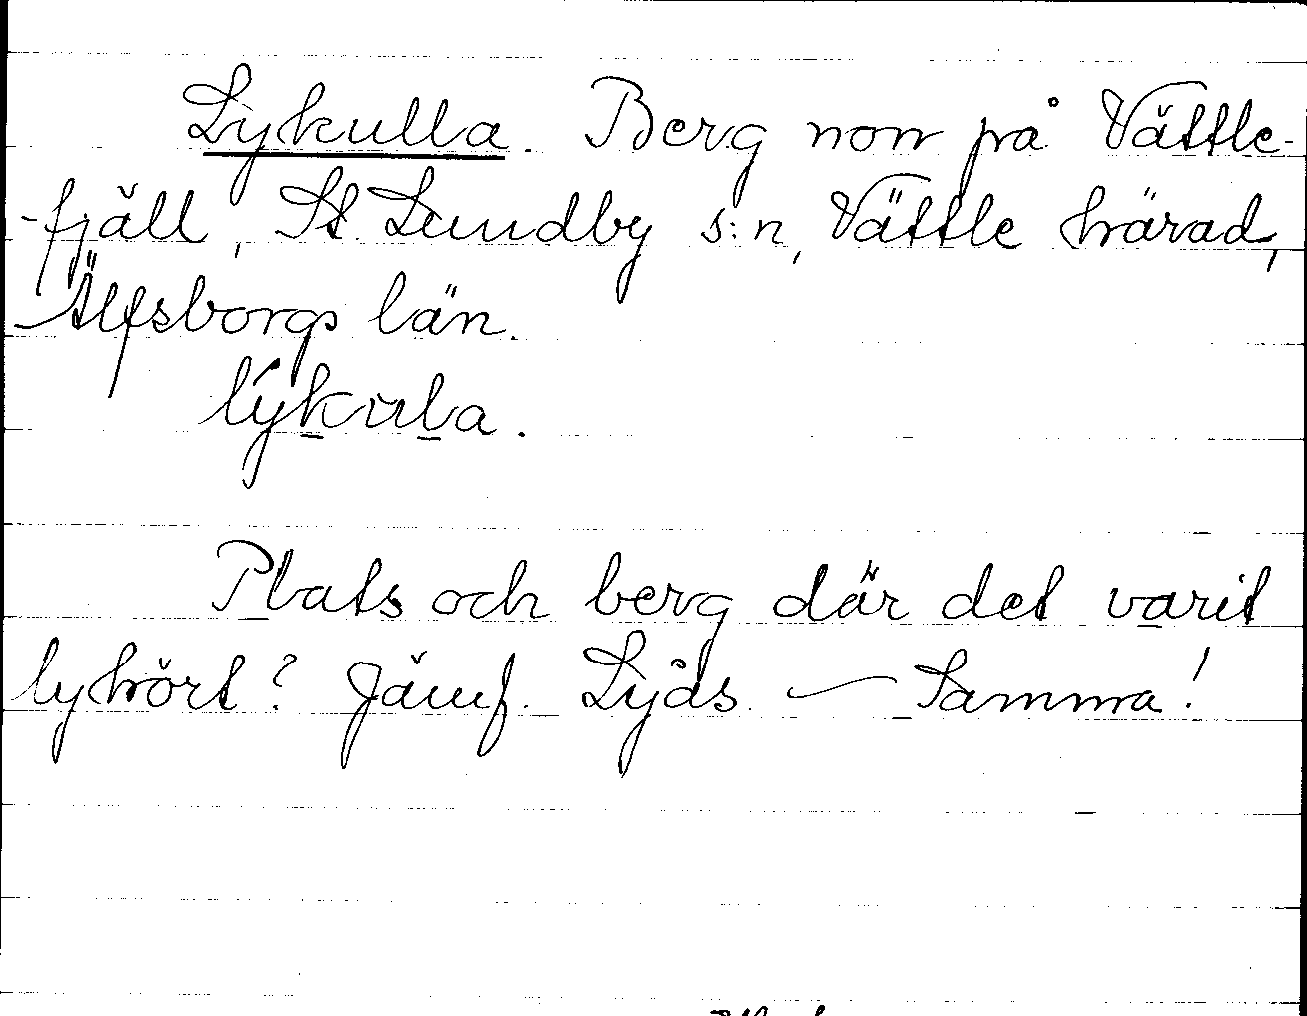 Lykulla. Berg norr på Vättle-
-fjäll, St. Lundby s:n, Vättle härad,
Älfsborgs län.
lýkula.
Plats och berg där det varit
lyhört? Jämf. Lyås — Samma!